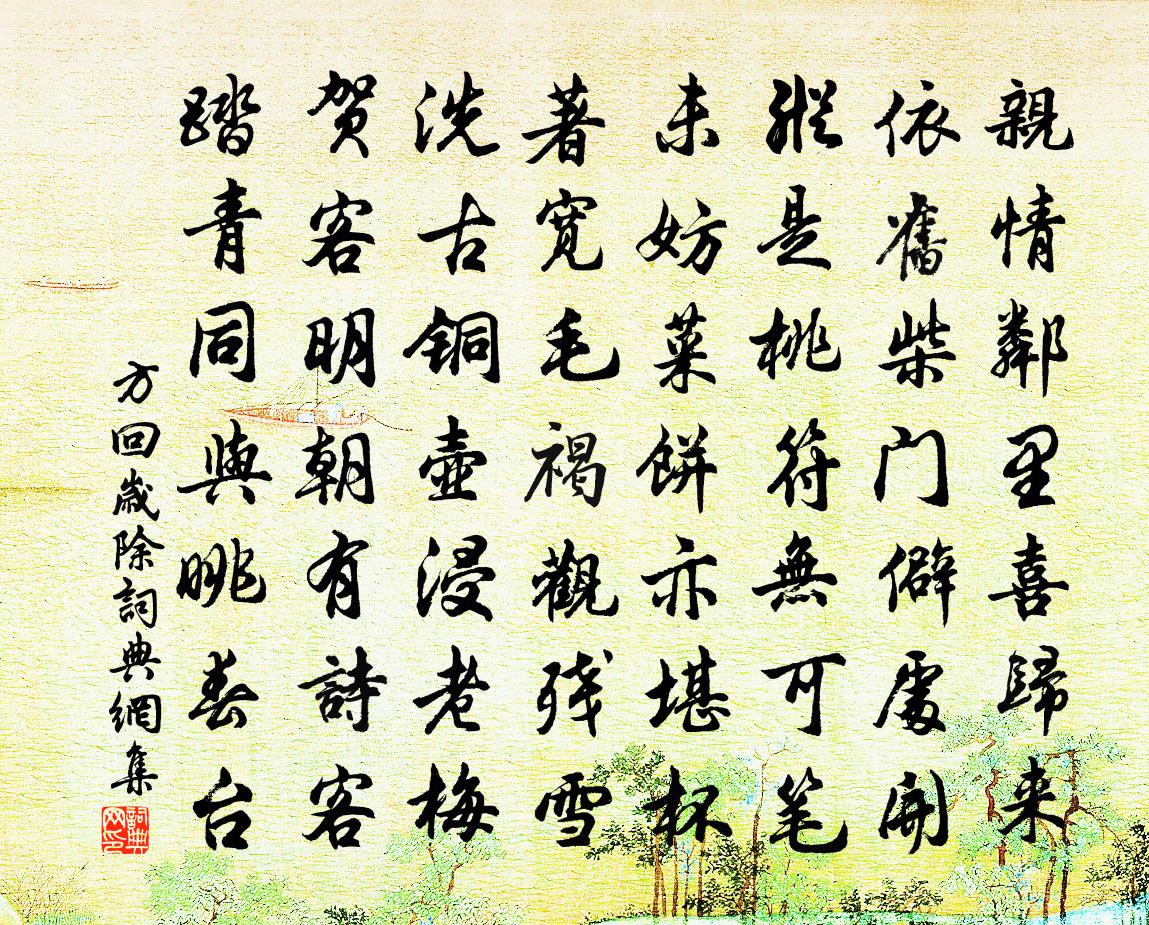 親情鄰里喜歸来
依舊柴门僻處開
縱是桃符無可笔
未妨菜餅亦堪杯
著宽毛褐觀残雪
洗古铜壺浸老梅
贺客明朝有詩客
踏青同與眺春台
方回歲除詞典網集